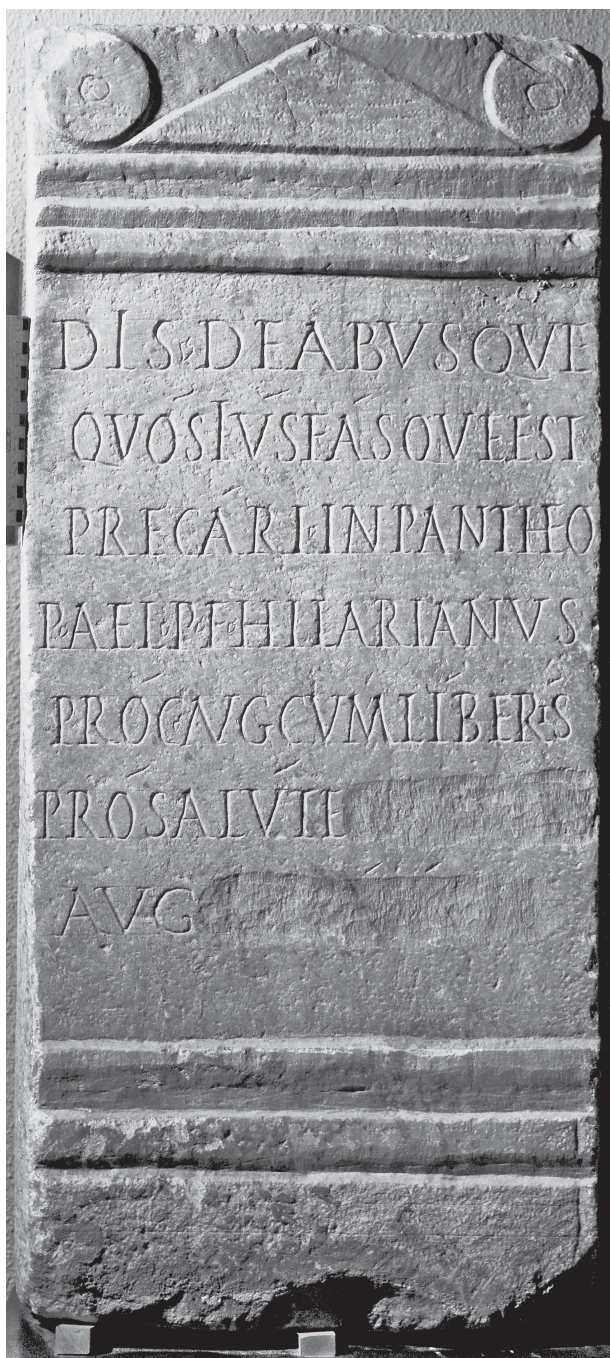 DIS DEABVSQVE
QVÓS IVS FÁSQVE EST
PRECARI IN PANTHEO
P AEL P F HILARIANVS
PROC AVG CVM LIBERIS
PRO SALVTE
AVG